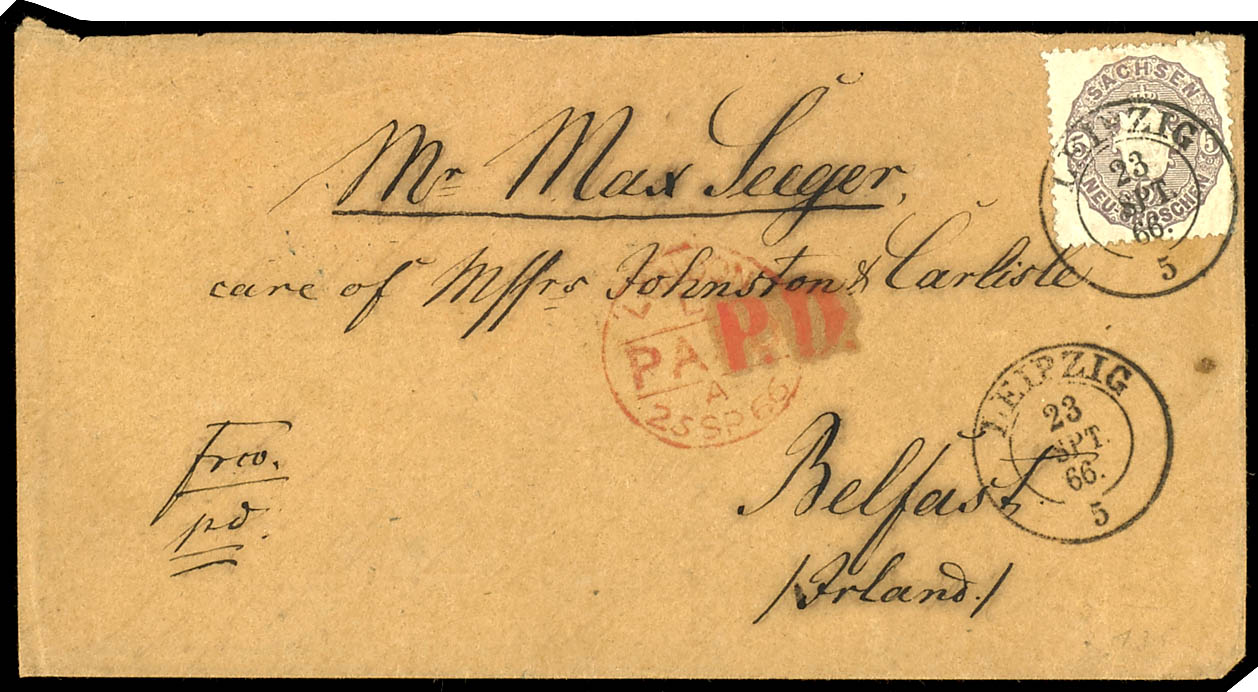 SACHSEN
5 5
NEU-GROSCHEN
LEIPZIG
23
SPT.
66.
5
Mr Max Seeger,
care of Messrs Johnston & Carlisle
LONDON
PA
A
25 SP 66
P.D.
LEIPZIG
23
SPT.
66.
5
frco.
pd.
Belfast
/Irland./